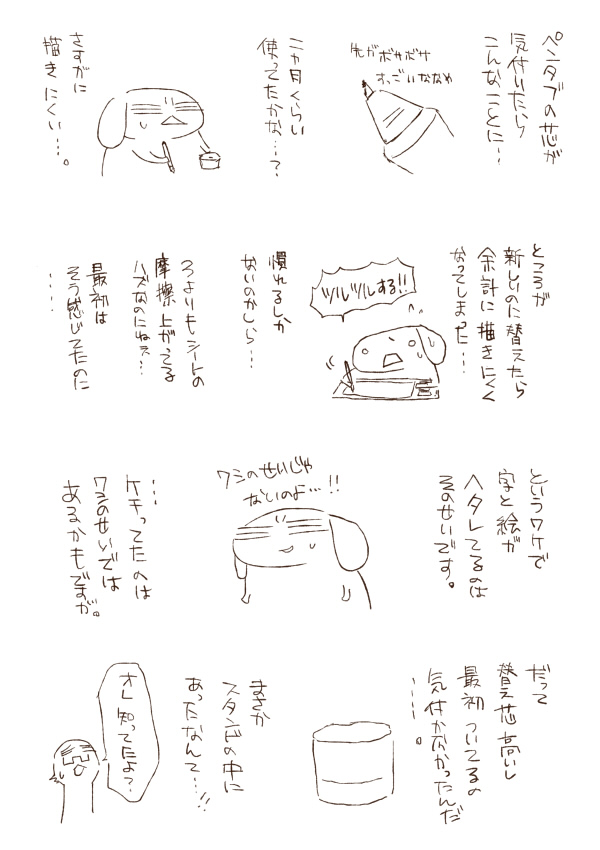 ペンタブの芯が
気付いたら
こんなことに…
先がボサボサ
すっごいななめ
二ヵ月くらい
使ってたかな…?
さすがに
描きにくい…。
ところが
新しいのに替えたら
余計に描きにくく
なってしまった…
ツルツルする!!
慣れるしか
ないのかしら…
つよりもシートの
摩擦上がってる
ハズなのにねぇ…
最初は
そう感じてたのに
……
というワケで
字と絵が
ヘタレてるのは
そのせいです。
ワシのせいじゃ
ないのよ…!!
…
ケチってたのは
ワシのせいでは
あるかもですが。
だって
替え芯高いし
最初ついてるの
気付かなかったんだ
……。
まさか
スタンドの中に
あったなんて…!!
オレ知ってたよ?